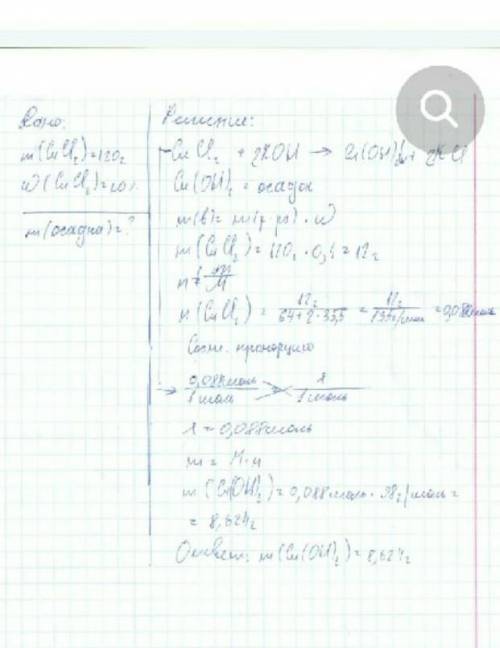 Дано:
m(CuCl₂)=120г
w(CuCl₂)=10%
m(осадка)=?
Решение:
CuCl₂ + 2KOH → Cu(OH)₂↓ + 2KCl
Cu(OH)₂ = осадок
m(в)= m(р-ра) · w
m(CuCl₂)=120г · 0,1=12г
n = m/M
n(CuCl₂) = 12г/64+2·35,5 = 12г/135г/моль = 0,088моль
пропорцию
0,088моль/1моль = x/1моль
x = 0,088моль
m = M·n
m(Cu(OH)₂)=0,088моль · 98г/моль=
= 8,624г
Ответ: m(Cu(OH)₂)=8,624г